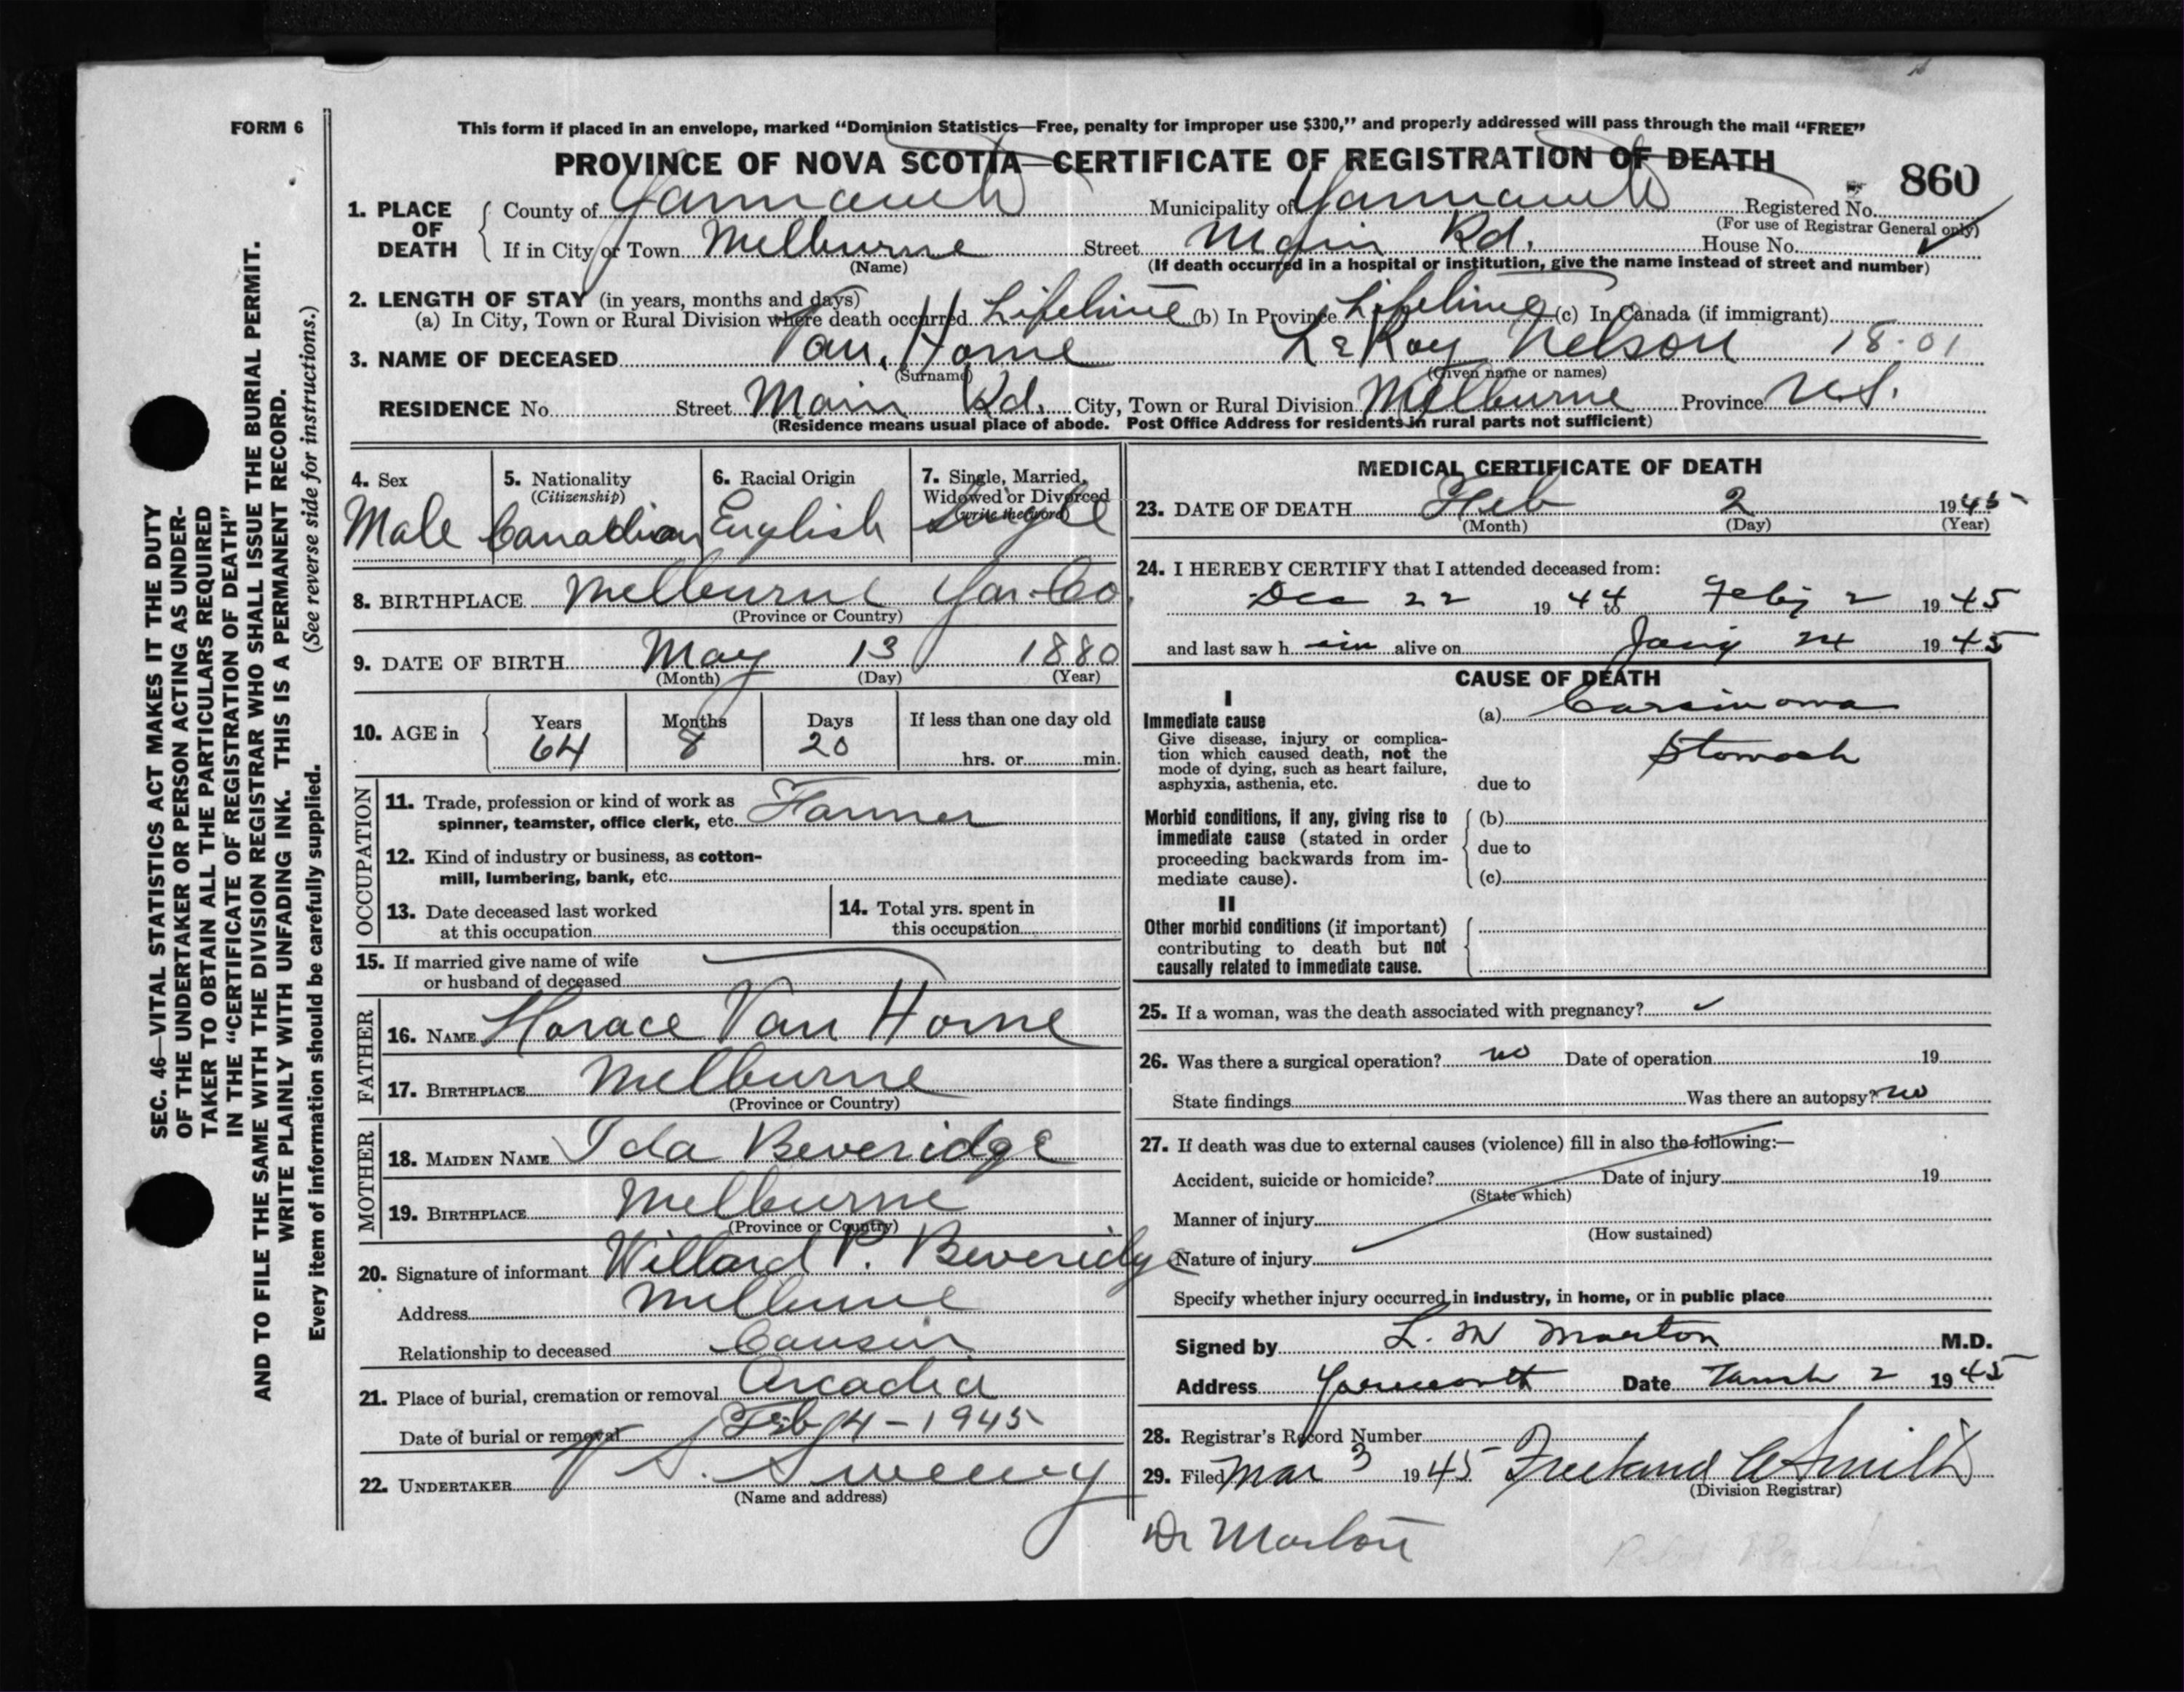 FORM 6
This form if placed in an envelope, marked "Dominion Statistics—Free, penalty for improper use $300," and properly addressed will pass through the mail "FREE"
PROVINCE OF NOVA SCOTIA—CERTIFICATE OF REGISTRATION OF DEATH
860
1. PLACE OF DEATH
County of Yarmouth Municipality of Yarmouth Registered No.
(For use of Registrar General only)
If in City or Town Melburne Street Main Rd. House No.
(Name)
(If death occurred in a hospital or institution, give the name instead of street and number)
2. LENGTH OF STAY (in years, months and days)
(a) In City, Town or Rural Division where death occurred Lifetime (b) In Province Lifetime (c) In Canada (if immigrant)
3. NAME OF DECEASED Van Horne LeRoy Nelson 18-01
(Surname) (Given name or names)
RESIDENCE No. Street Main Rd. City, Town or Rural Division Melburne Province N.S.
(Residence means usual place of abode. Post Office Address for residents in rural parts not sufficient)
4. Sex
Male
5. Nationality
(Citizenship)
Canadian
6. Racial Origin
English
7. Single, Married,
Widowed or Divorced
(write the word)
Single
8. BIRTHPLACE Melburne Yar. Co.
(Province or Country)
9. DATE OF BIRTH May 13 1880
(Month) (Day) (Year)
10. AGE in
Years Months Days If less than one day old
64 8 20
hrs. or min.
OCCUPATION
11. Trade, profession or kind of work as
spinner, teamster, office clerk, etc. Farmer
12. Kind of industry or business, as cotton-
mill, lumbering, bank, etc.
13. Date deceased last worked
at this occupation
14. Total yrs. spent in
this occupation
15. If married give name of wife
or husband of deceased
FATHER
16. NAME Horace Van Horne
17. BIRTHPLACE Melburne
(Province or Country)
MOTHER
18. MAIDEN NAME Ida Beveridge
19. BIRTHPLACE Melburne
(Province or Country)
20. Signature of informant Willard P. Beveridge
Address Melburne
Relationship to deceased Cousin
21. Place of burial, cremation or removal Arcadia
Date of burial or removal Feb 4 - 1945
22. UNDERTAKER V. S. Sweeny
(Name and address)
MEDICAL CERTIFICATE OF DEATH
23. DATE OF DEATH Feb 2 1945
(Month) (Day) (Year)
24. I HEREBY CERTIFY that I attended deceased from:
Dec 22 1944 to Feby 2 1945
and last saw h im alive on Jany 24 1945
CAUSE OF DEATH
I
Immediate cause
Give disease, injury or complica-
tion which caused death, not the
mode of dying, such as heart failure,
asphyxia, asthenia, etc.
(a) Carsinoma
Stomach
due to
Morbid conditions, if any, giving rise to
immediate cause (stated in order
proceeding backwards from im-
mediate cause).
(b)
due to
(c)
II
Other morbid conditions (if important)
contributing to death but not
causally related to immediate cause.
25. If a woman, was the death associated with pregnancy?
26. Was there a surgical operation? no Date of operation 19
State findings Was there an autopsy? no
27. If death was due to external causes (violence) fill in also the following:—
Accident, suicide or homicide? Date of injury 19
(State which)
Manner of injury
(How sustained)
Nature of injury
Specify whether injury occurred in industry, in home, or in public place
Signed by L. M Morton M.D.
Address Yarmouth Date March 2 1945
28. Registrar's Record Number
29. Filed Mar 3 1945 Freeland A Smith
(Division Registrar)
Dr Morton
SEC. 46—VITAL STATISTICS ACT MAKES IT THE DUTY
OF THE UNDERTAKER OR PERSON ACTING AS UNDER-
TAKER TO OBTAIN ALL THE PARTICULARS REQUIRED
IN THE "CERTIFICATE OF REGISTRATION OF DEATH"
AND TO FILE THE SAME WITH THE DIVISION REGISTRAR WHO SHALL ISSUE THE BURIAL PERMIT.
WRITE PLAINLY WITH UNFADING INK. THIS IS A PERMANENT RECORD.
Every item of information should be carefully supplied. (See reverse side for instructions.)